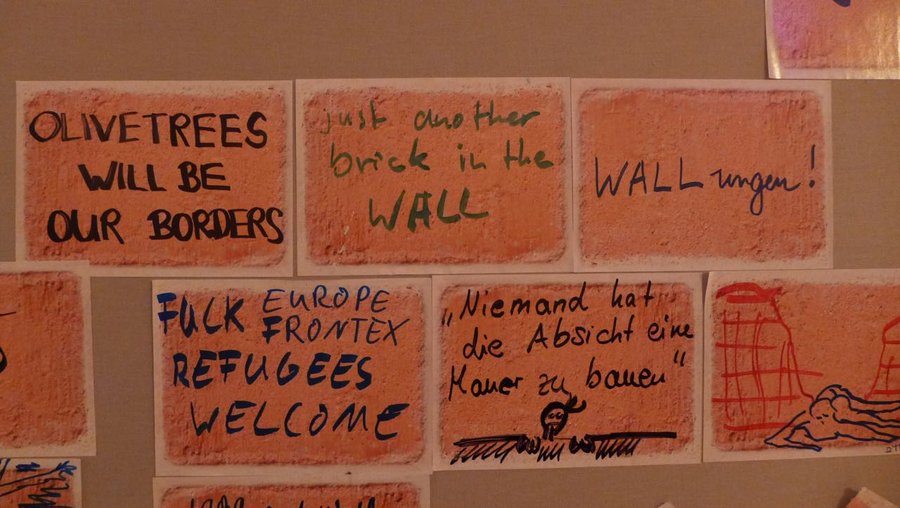 OLIVETREES
WILL BE
OUR BORDERS
just another
brick in the
WALL
WALLungen!
FUCK EUROPE
FRONTEX
REFUGEES
WELCOME
„Niemand hat
die Absicht eine
Mauer zu bauen"